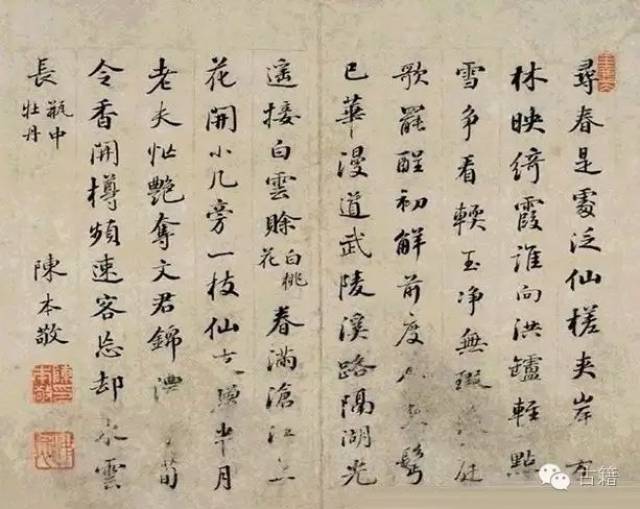 尋春是處泛仙槎夾岸方
林映綺霞誰向洪鑪輕點
雪争看輭玉净無瑕
歌罷醒初解前度鬢
已華漫道武陵溪路隔湖光
遥接白雲賖白桃花春滿滄江上
花開小几旁一枝仙半月
老夫忙艷奪文君錦荀
令香開樽頻速客忘却水雲
長瓶中牡丹
陳本敬
古籍